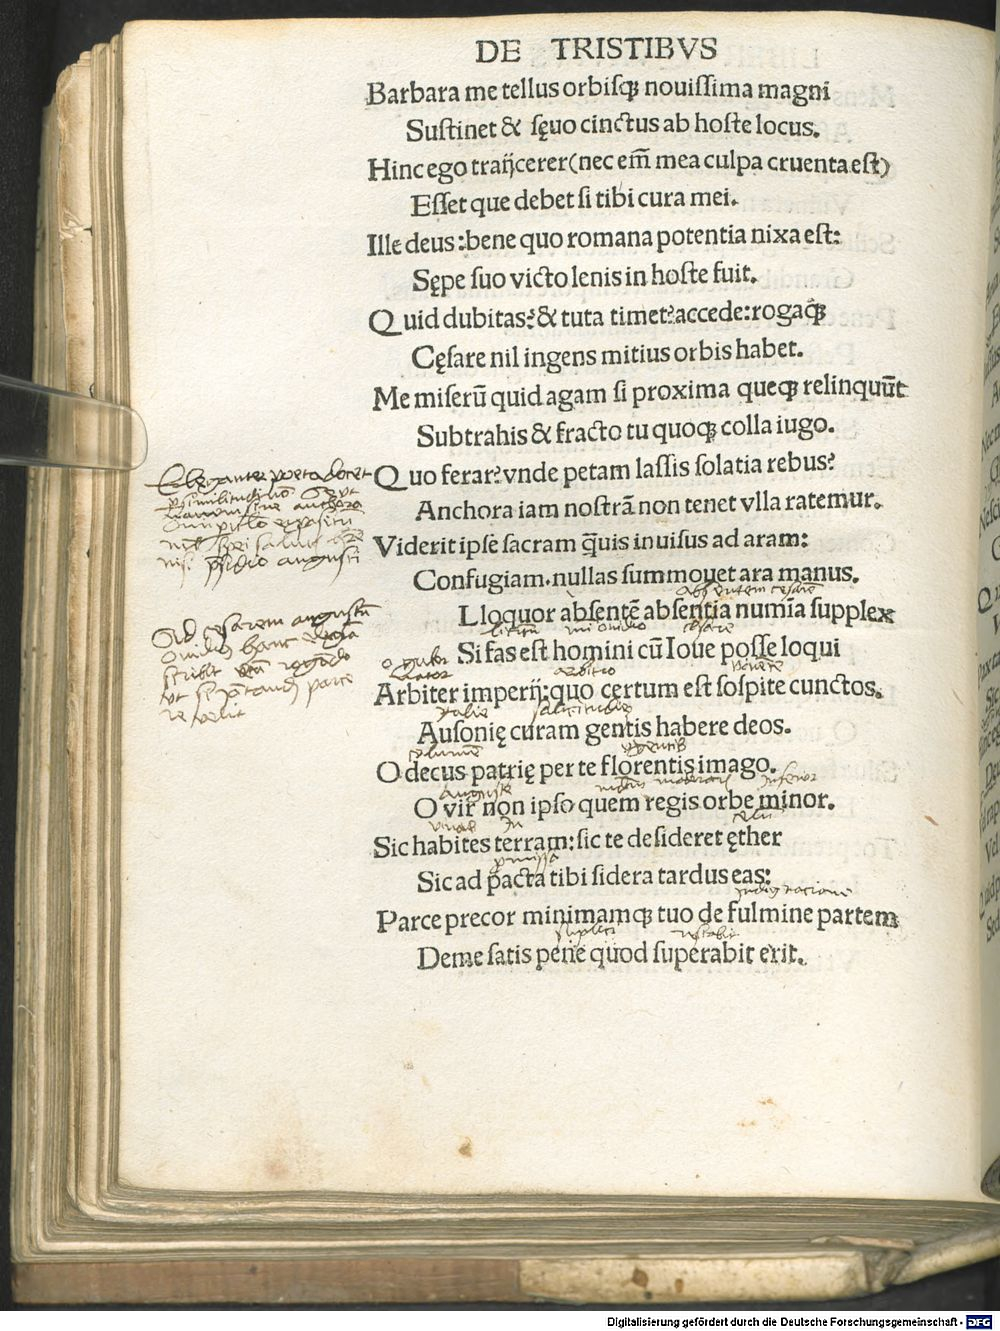 DE TRISTIBVS
Barbara me tellus orbisqꝫ nouissima magni
Sustinet & sęuo cinctus ab hoste locus.
Hinc ego traijcerer (nec em̄ mea culpa cruenta est)
Esset que debet si tibi cura mei.
Ille deus: bene quo romana potentia nixa est:
Sępe suo victo lenis in hoste fuit.
Quid dubitas? & tuta timet? accede: rogaqꝫ
Cęsare nil ingens mitius orbis habet.
Me miserū quid agam si proxima queqꝫ relinquūt
Subtrahis & fracto tu quoqꝫ colla iugo.
Quo ferar? vnde petam lassis solatia rebus?
Anchora iam nostrā non tenet vlla ratemur.
Viderit ipse sacram q̄uis inuisus ad aram:
Confugiam. nullas summouet ara manus.
absentem cesarē
Lloquor absentē absentia numīa supplex
Si fas est homini cū Ioue posse loqui
Arbiter imperij: quo certum est sospite cunctos.
Ausonię curam gentis habere deos.
O decus patrię per te florentis imago.
O vir non ipso quem regis orbe minor.
Sic habites terram: sic te desideret ęther
Sic ad pacta tibi sidera tardus eas:
Parce precor minimamqꝫ tuo de fulmine partem
Deme satis pene quod superabit erit.
Eleganter poeta docet
nisi psidio augusti
Ad cesarem augustū
Ouidius hanc elegiā
scribit
Digitalisierung gefördert durch die Deutsche Forschungsgemeinschaft - DFG